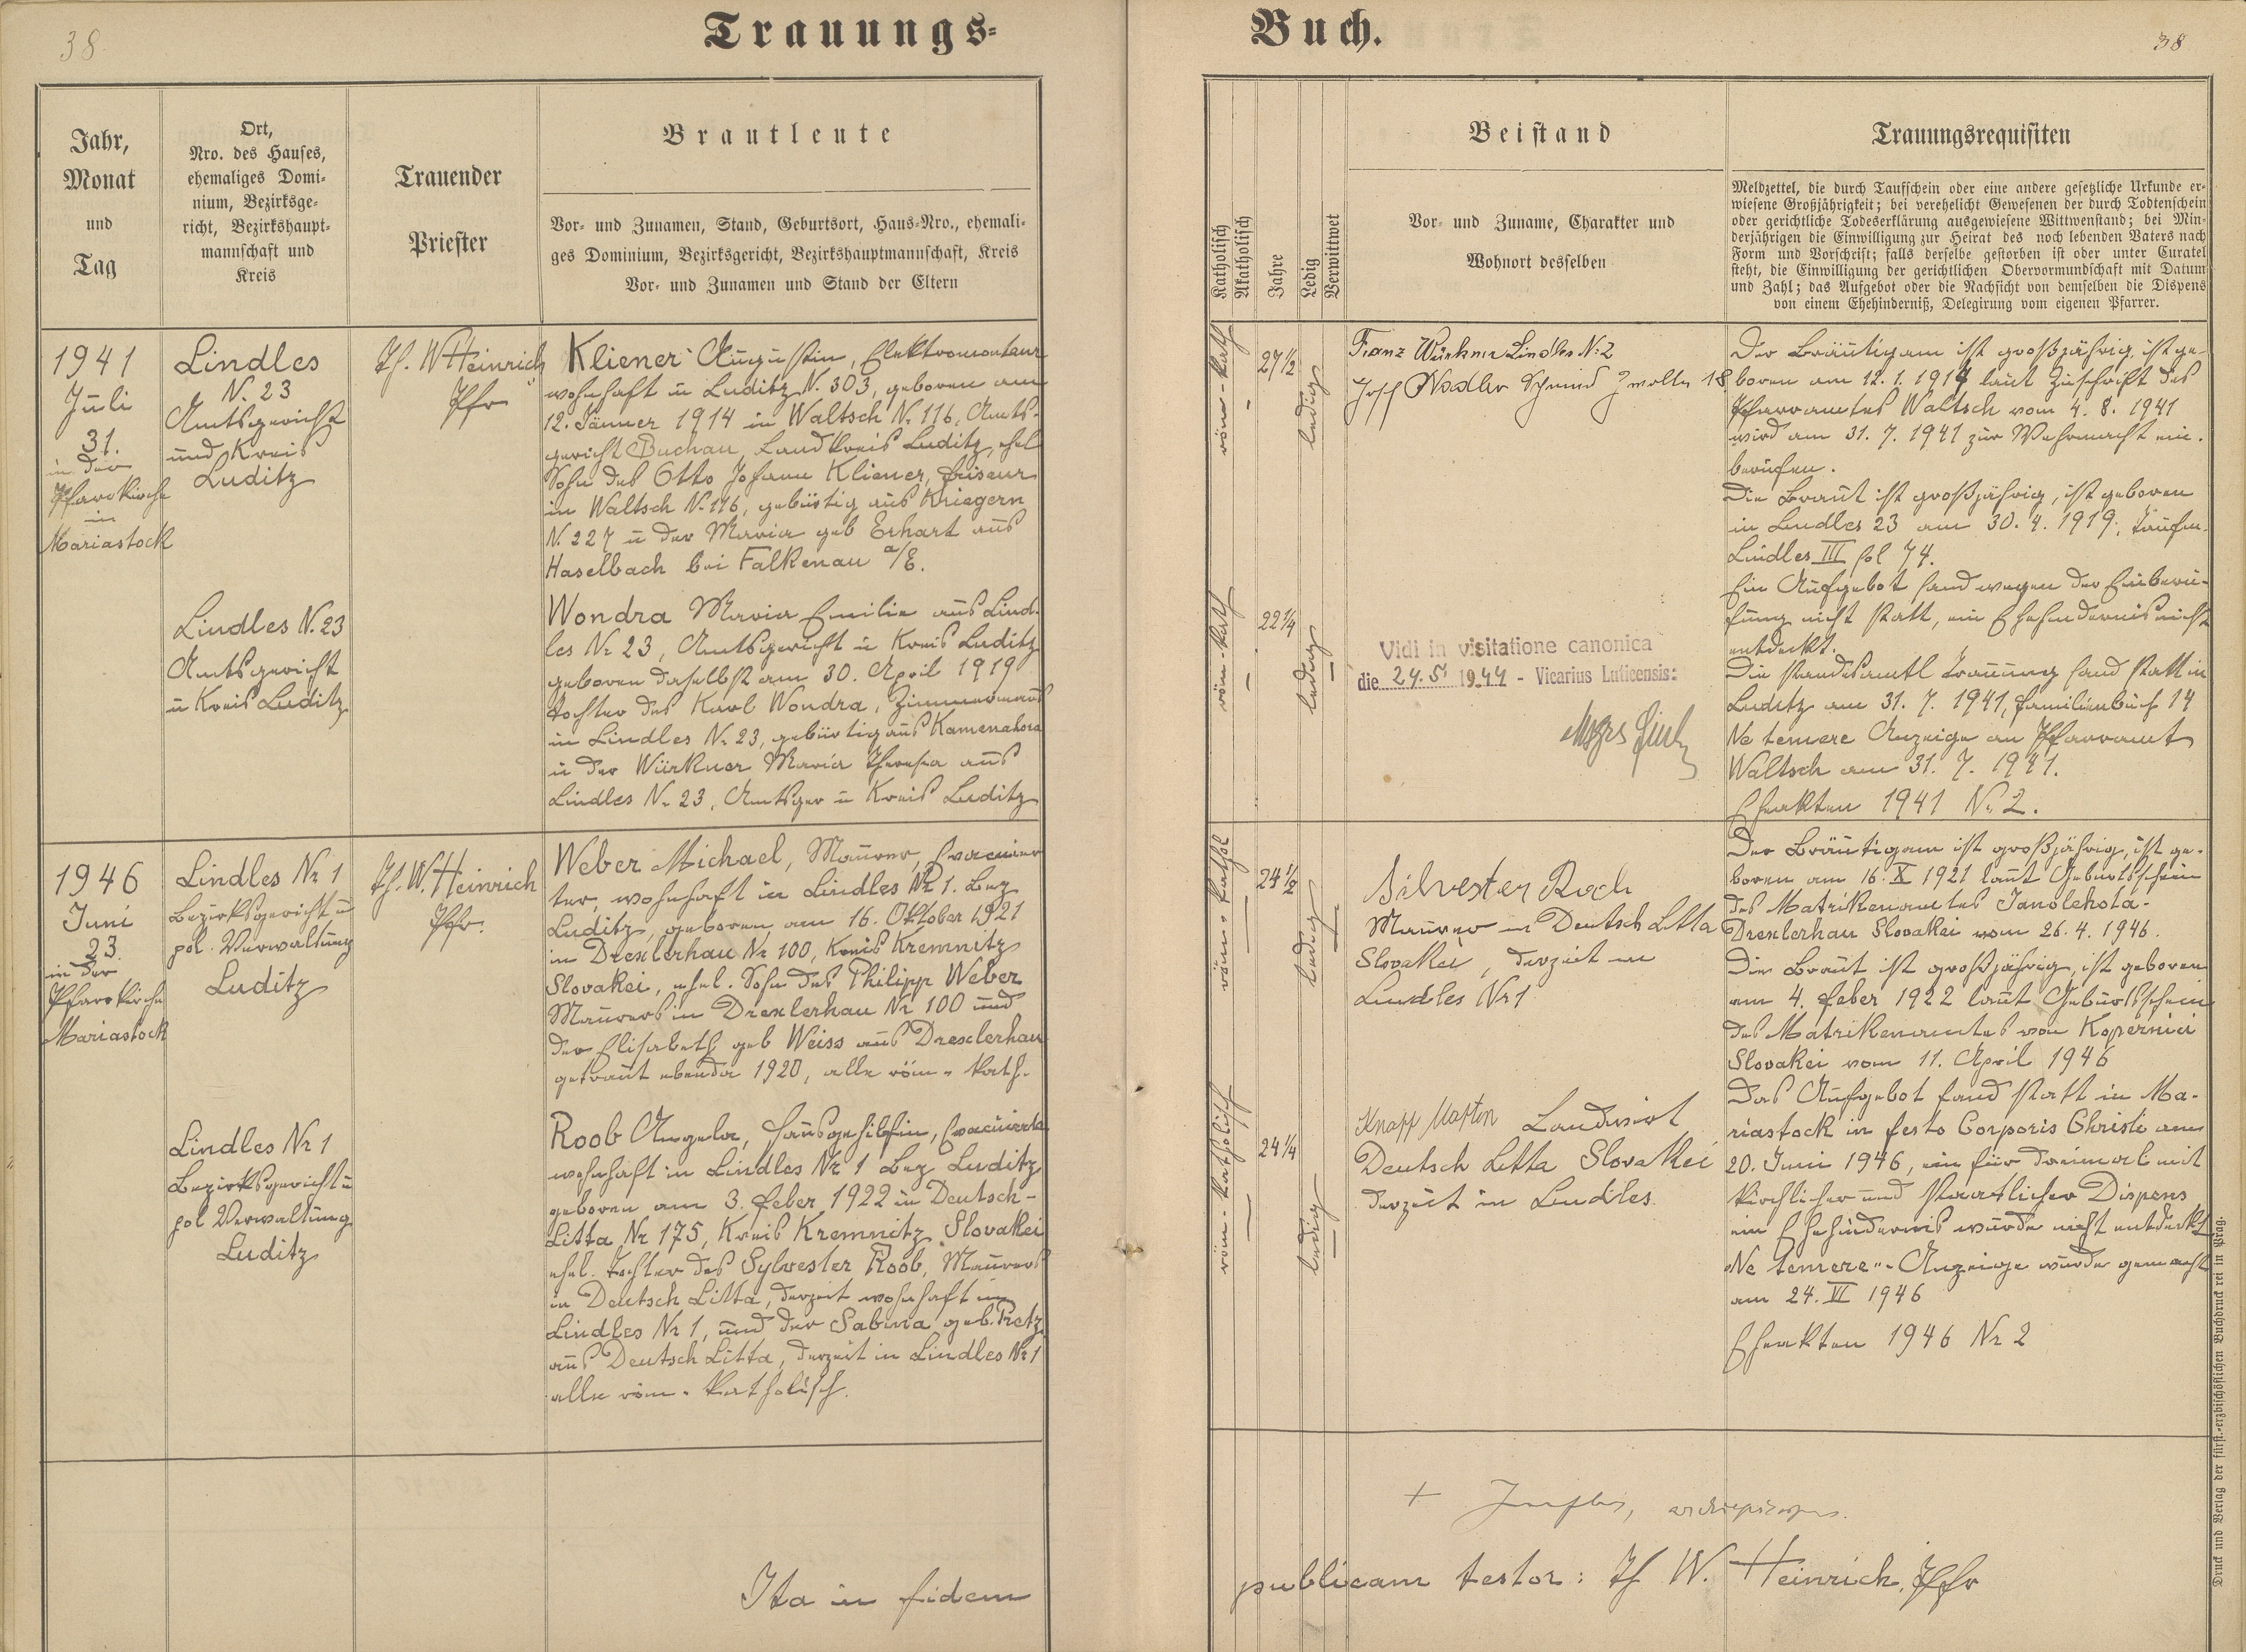 38
Trauungs-
Jahr,
Monat
und
Tag
Ort,
Nro. des Hauses,
ehemaliges Domi-
nium, Bezirksge-
richt, Bezirkshaupt-
mannschaft und
Kreis
Trauender
Priester
Brautleute
Vor- und Zunamen, Stand, Geburtsort, Haus-Nro., ehemali-
ges Dominium, Bezirksgericht, Bezirkshauptmannschaft, Kreis
Vor- und Zunamen und Stand der Eltern
1941
Juli
31.
in der
Pfarrkirche
in
Mariastock
Lindles
N. 23
Amtsgericht
und Kreis
Luditz
Th. W Heinrich
Pfr
Kliener Augustin, Elektromonteur
wohnhaft in Luditz N. 303, geboren am
12. Jänner 1914 in Waltsch Nr 116, Amts-
gericht Buchau, Landkreis Luditz, ehel
Sohn des Otto Johann Kliener, Friseur
in Waltsch N. 116, gebürtig aus Kriegern
N. 227 u der Maria geb Erhart aus
Haselbach bei Falkenau a/E.
Lindles N. 23
Amtsgericht
u Kreis Luditz
Wondra Maria Emilie aus Lind-
les Nr 23, Amtsgericht u Kreis Luditz
geboren daselbst am 30. April 1919
Tochter des Karl Wondra, Zimmermann
in Lindles Nr 23, gebürtig aus Kamenahora
u der Würkner Maria Theresia aus
Lindles Nr 23, Amtsger u Kreis Luditz
1946
Juni
23.
in der
Pfarrkirche
Mariastock
Lindles Nr 1
Bezirksgericht u
pol. Verwaltung
Luditz
Th. W. Heinrich
Pfr.
Weber Michael, Maurer, Evacuier
ter, wohnhaft in Lindles Nr 1. Bez
Luditz, geboren am 16. Oktober 1921
in Drexlerhau Nr 100, Kreis Kremnitz
Slovakei, ehel. Sohn des Philipp Weber
Maurers in Drexlerhau Nr 100 und
der Elisabeth geb Weiss aus Drexlerhau
getraut ebenda 1920, alle röm.- kath.
Lindles Nr 1
Bezirksgericht u
pol Verwaltung
Luditz
Roob Angela, Hausgehilfin, Evacuierte
wohnhaft in Lindles Nr 1 Bez Luditz
geboren am 3. Feber 1922 in Deutsch-
Litta Nr 175, Kreis Kremnitz, Slovakei
ehel. Tochter des Sylvester Roob, Maurers
in Deutsch Litta, derzeit wohnhaft in
Lindles Nr 1, und der Sabina geb. Pretz
aus Deutsch Litta, derzeit in Lindles Nr 1
alle röm. katholisch.
Ita in fidem
Buch.
38
Katholisch
Akatholisch
Jahre
Ledig
Verwittwet
Beistand
Vor- und Zuname, Charakter und
Wohnort desselben
Trauungsrequisiten
Meldzettel, die durch Taufschein oder eine andere gesetzliche Urkunde er-
wiesene Großjährigkeit; bei verehelicht Gewesenen der durch Todtenschein
oder gerichtliche Todeserklärung ausgewiesene Wittwenstand; bei Min-
derjährigen die Einwilligung zur Heirat des noch lebenden Vaters nach
Form und Vorschrift; falls derselbe gestorben ist oder unter Curatel
steht, die Einwilligung der gerichtlichen Obervormundschaft mit Datum
und Zahl; das Aufgebot oder die Nachsicht von demselben die Dispens
von einem Ehehinderniß, Delegirung vom eigenen Pfarrer.
röm-kath
27 1/2
ledig
Franz Würkner Lindles N: 2
Josef Nadler Schmied 18
Der Bräutigam ist großjährig, ist ge-
boren am 12. 1. 1914 laut Zuschrift des
Pfarramtes Waltsch vom 4. 8. 1941
wird am 31. 7. 1941 zur Wehrmacht ein-
berufen.
Die Braut ist großjährig, ist geboren
in Lindles 23 am 30. 4. 1919, Taufm.
Lindles III fol 74.
Ein Aufgebot fand wegen der Einberu-
fung nicht statt, ein Ehehindernis nicht
entdeckt.
Die standesamtl Trauung fand statt in
Luditz am 31. 7. 1941, Familienbuch 14
Ne temere Anzeige an Pfarramt
Waltsch am 31. 7. 1941.
Eheakten 1941 Nr 2.
röm-kath
22 1/4
ledig
Vidi in visitatione canonica
die 24. 5. 1944 - Vicarius Luticensis:
röm.- kathol
24 1/2
ledig
Silvester Rob
Maurer in Deutsch Litta
Slovakei, derzeit in
Lindles Nr 1
Der Bräutigam ist großjährig, ist ge-
boren am 16. X 1921 laut Geburtsschein
des Matrikenamtes Janolehota-
Drexlerhau Slovakei vom 26. 4. 1946.
Die Braut ist großjährig, ist geboren
am 4. Feber 1922 laut Geburtsschein
des Matrikenamtes von Kopernici
Slovakei vom 11. April 1946
Das Aufgebot fand statt in Ma-
riastock in festo Corporis Christi am
20. Juni 1946, ein für dreimal mit
kirchlicher und staatlicher Dispens
ein Ehehindernis wurde nicht entdeckt
„Ne temere"-Anzeige wurde gemacht
am 24. VI 1946
Eheakten 1946 Nr 2
röm-katholisch
24 1/4
ledig
Knapp Martin Landwirt
Deutsch Litta Slovakei
derzeit in Lindles.
+ archiepiscopus.
publicam testor: Th W. Heinrich, Pfr
Druck und Verlag der fürst.-erzbischöflichen Buchdruckerei in Prag.